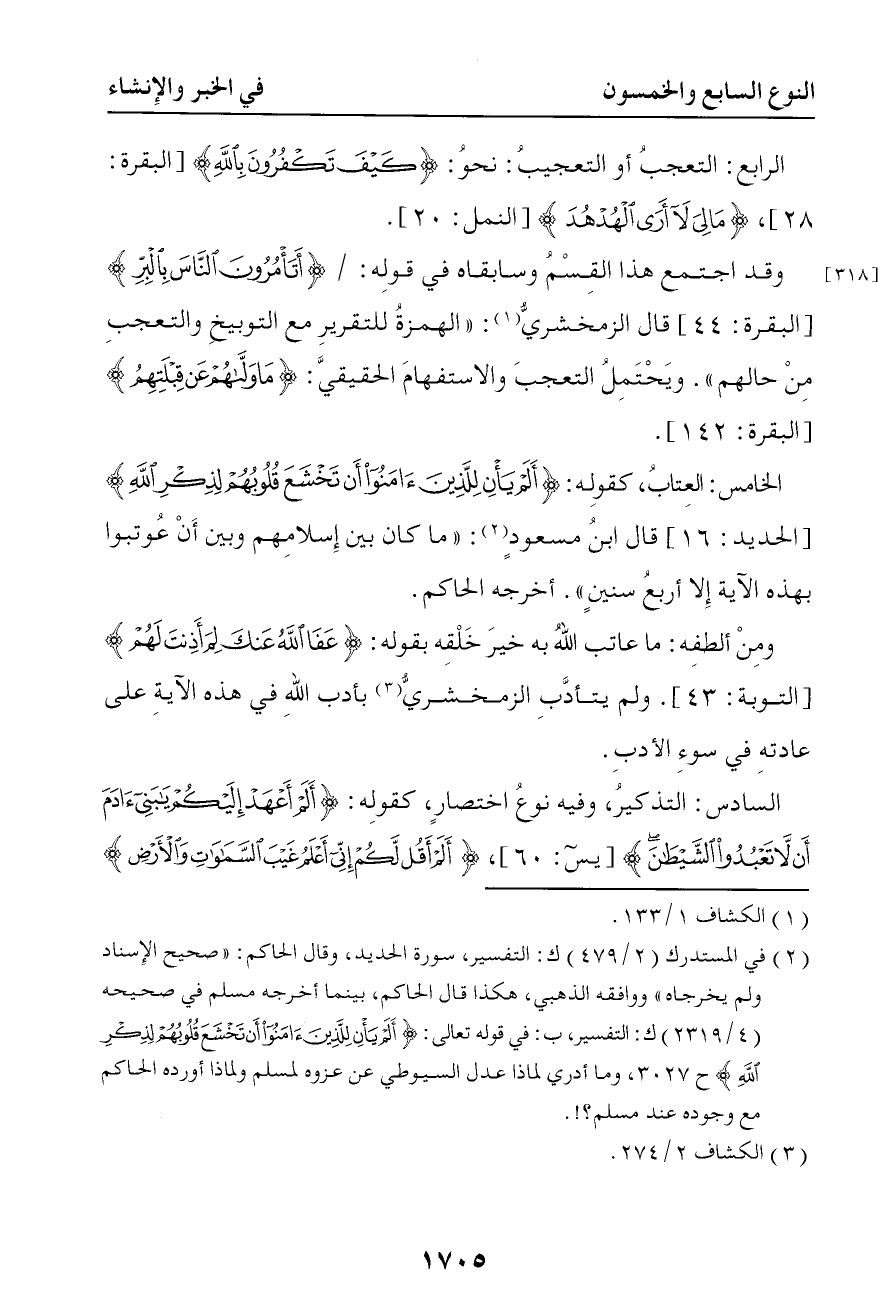 النوع السابع والخمسون في الخبر والإنشاء
الرابع: التعجبُ أو التعجيبُ: نحوُ: ﴿كَيْفَ تَكْفُرُونَ بِٱللَّهِ﴾ [البقرة:
٢٨]، ﴿مَالِىَ لَآ أَرَى ٱلْهُدْهُدَ﴾ [النمل: ٢٠].
[٣١٨] وقد اجتمع هذا القِسْمُ وسابقاه في قوله: / ﴿أَتَأْمُرُونَ ٱلنَّاسَ بِٱلْبِرِّ﴾
[البقرة: ٤٤] قال الزمخشريُّ(١): «الهمزةُ للتقريرِ مع التوبيخِ والتعجبِ
مِنْ حالهم». ويَحْتَمِلُ التعجبَ والاستفهامَ الحقيقيَّ: ﴿مَا وَلَّىٰهُمْ عَن قِبْلَتِهِمُ﴾
[البقرة: ١٤٢].
الخامس: العِتابُ، كقولِه: ﴿أَلَمْ يَأْنِ لِلَّذِينَ ءَامَنُوٓا۟ أَن تَخْشَعَ قُلُوبُهُمْ لِذِكْرِ ٱللَّهِ﴾
[الحديد: ١٦] قال ابنُ مسعودٍ(٢): «ما كان بين إسلامِهم وبين أنْ عُوتبوا
بهذه الآيةِ إلا أربعُ سنينٍ». أخرجه الحاكم.
ومِنْ ألطفِه: ما عاتب اللهُ به خيرَ خَلْقِه بقوله: ﴿عَفَا ٱللَّهُ عَنكَ لِمَ أَذِنتَ لَهُمْ﴾
[التوبة: ٤٣]. ولم يتأدَّبِ الزمخشريُّ(٣) بأدب اللهِ في هذه الآيةِ على
عادتِه في سوءِ الأدبِ.
السادس: التذكيرُ، وفيه نوعُ اختصارٍ، كقولِه: ﴿أَلَمْ أَعْهَدْ إِلَيْكُمْ يَٰبَنِىٓ ءَادَمَ
أَن لَّا تَعْبُدُوا۟ ٱلشَّيْطَٰنَۖ﴾ [يسٓ: ٦٠]، ﴿أَلَمْ أَقُل لَّكُمْ إِنِّىٓ أَعْلَمُ غَيْبَ ٱلسَّمَٰوَٰتِ وَٱلْأَرْضِ﴾
(١) الكشاف ١/ ١٣٣.
(٢) في المستدرك (٢/ ٤٧٩) ك: التفسير، سورة الحديد، وقال الحاكم: «صحيح الإسناد
ولم يخرجاه» ووافقه الذهبي، هكذا قال الحاكم، بينما أخرجه مسلم في صحيحه
(٤/ ٢٣١٩) ك: التفسير، ب: في قوله تعالى: ﴿أَلَمْ يَأْنِ لِلَّذِينَ ءَامَنُوٓا۟ أَن تَخْشَعَ قُلُوبُهُمْ لِذِكْرِ
ٱللَّهِ﴾ ح ٣٠٢٧، وما أدري لماذا عدل السيوطي عن عزوه لمسلم ولماذا أورده الحاكم
مع وجوده عند مسلم؟!.
(٣) الكشاف ٢/ ٢٧٤.
١٧٠٥